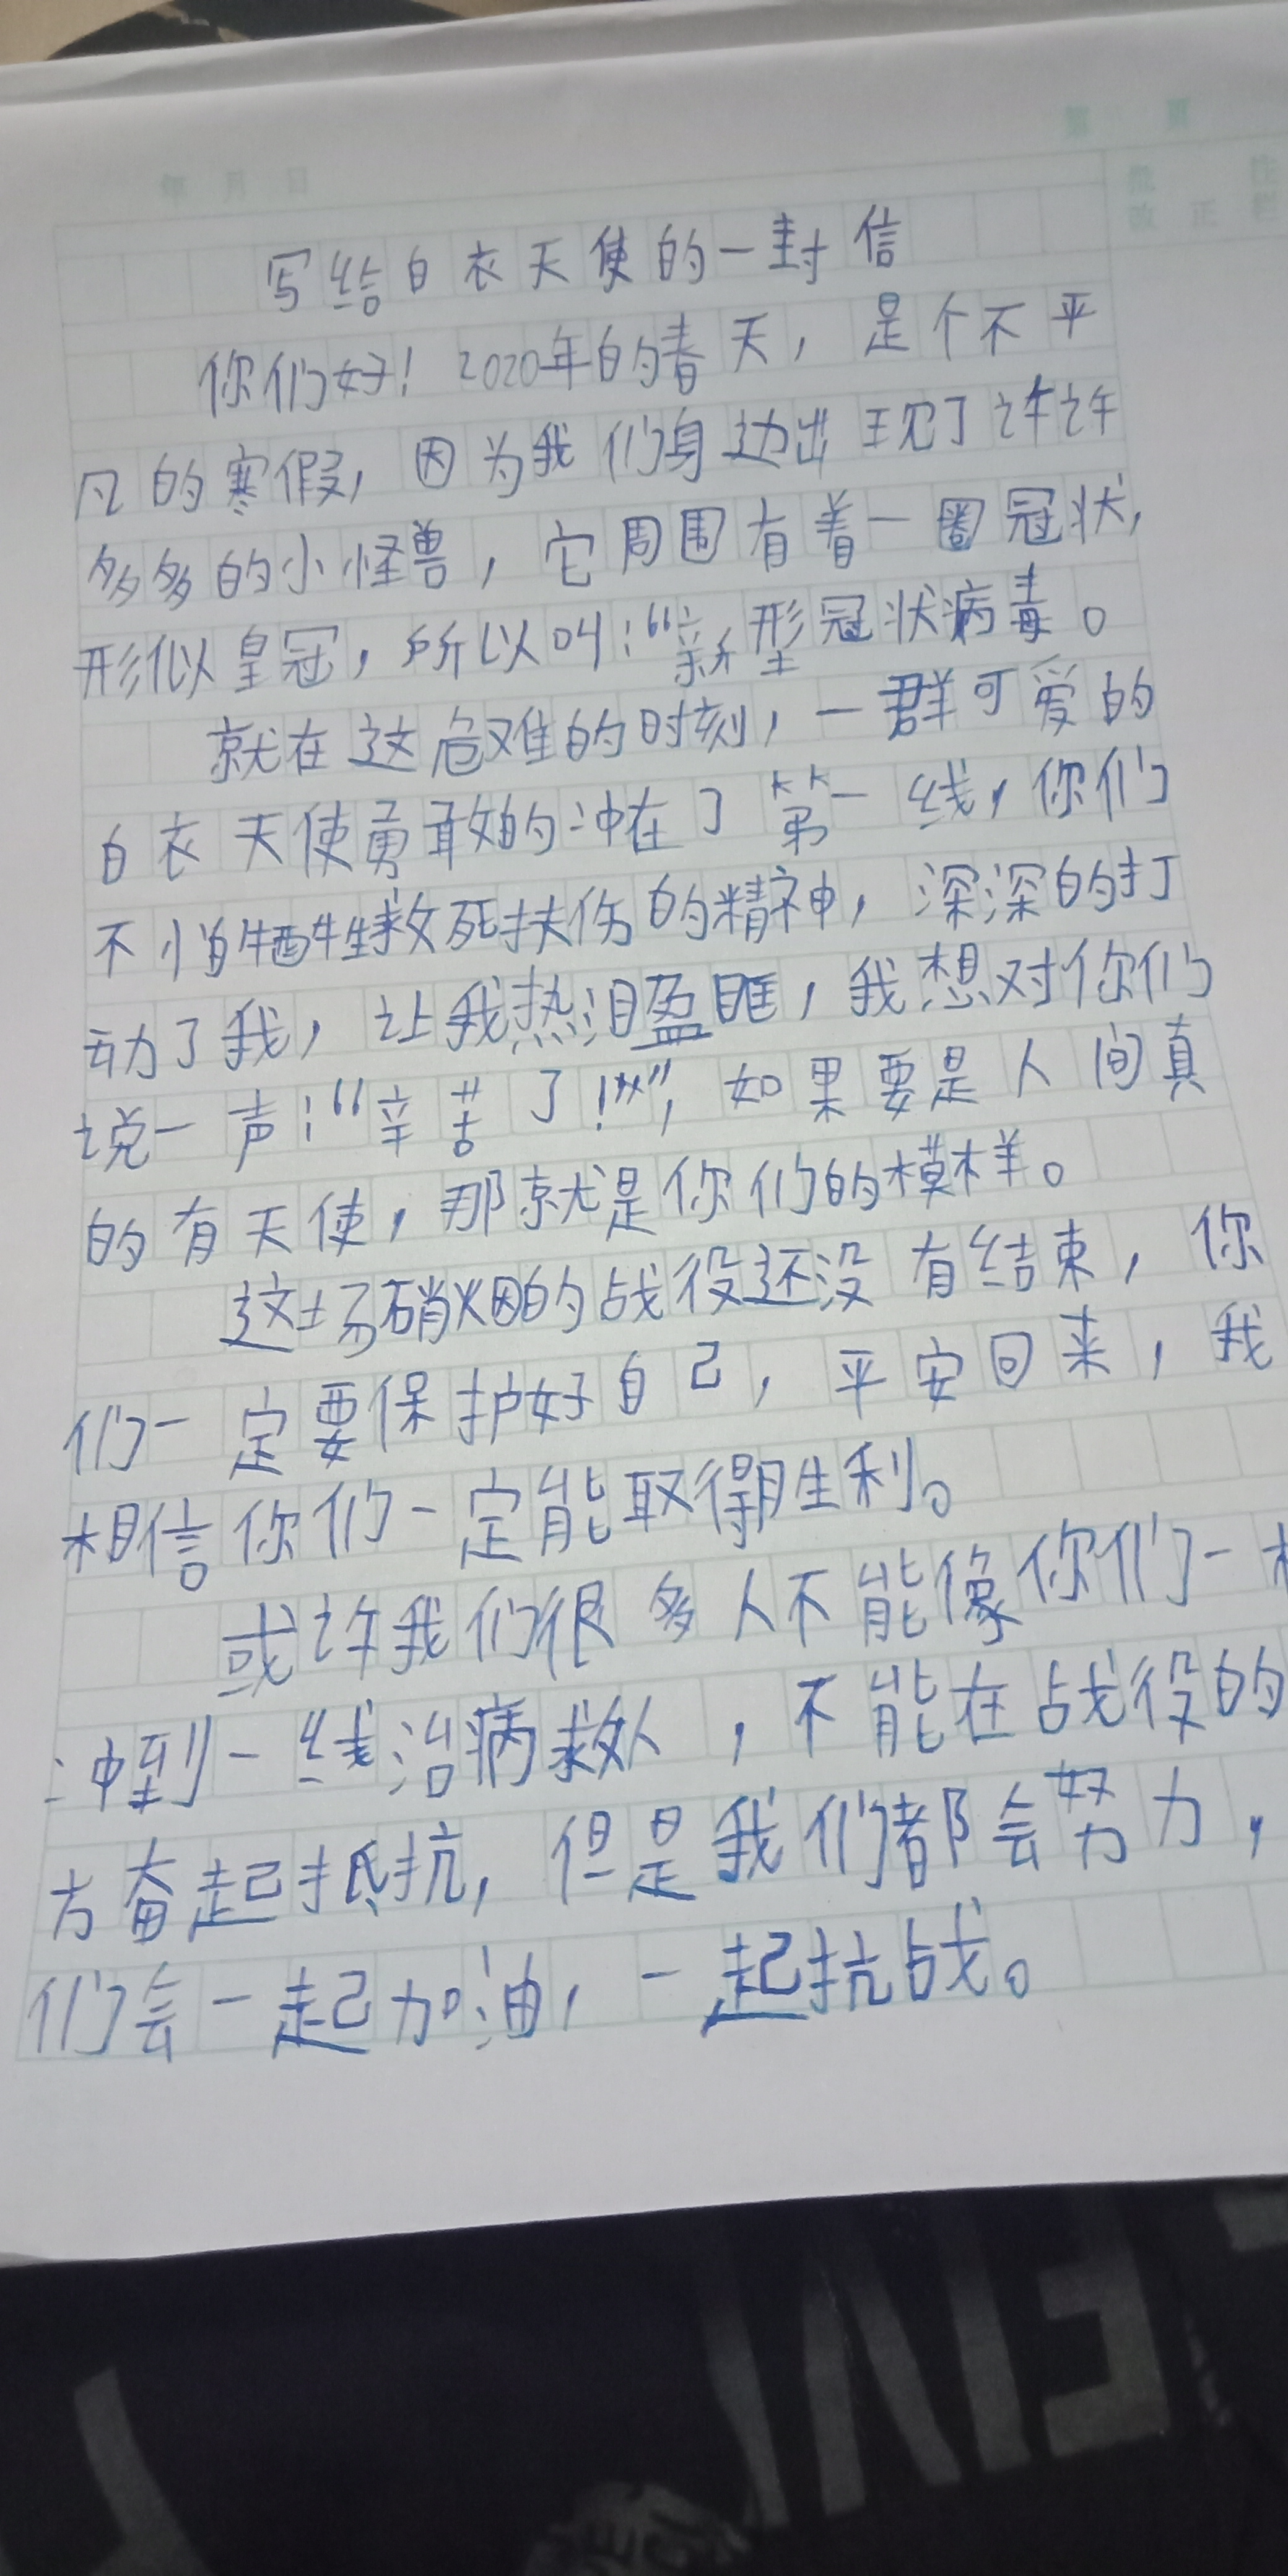 第 页
年 月 日
批 注
改 正 栏
写给白衣天使的一封信
你们好！2020年的春天，是个不平
凡的寒假，因为我们身边出现了许许
多多的小怪兽，它周围有着一圈冠状，
形似皇冠，所以叫：“新型冠状病毒。
就在这危难的时刻，一群可爱的
白衣天使勇敢的冲在了第一线，你们
不怕牺牲救死扶伤的精神，深深的打
动了我，让我热泪盈眶，我想对你们
说一声：“辛苦了！”，如果要是人间真
的有天使，那就是你们的模样。
这场硝烟的战役还没有结束，你
们一定要保护好自己，平安回来，我
相信你们一定能取得胜利。
或许我们很多人不能像你们一
冲到一线治病救人，不能在战役的
方奋起抵抗，但是我们都会努力，
们会一起加油，一起抗战。